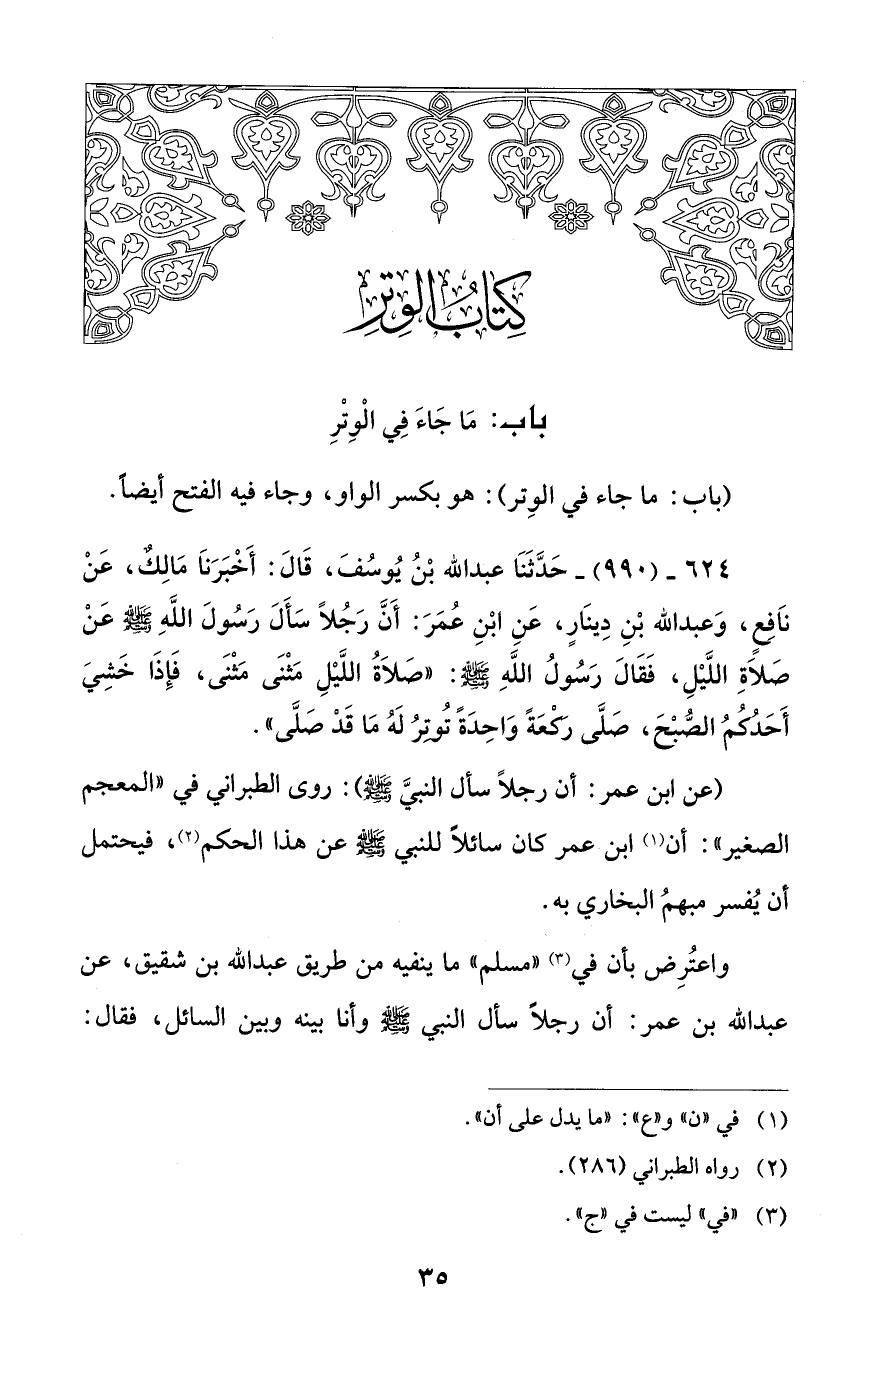 كِتَابُ الوِتْرِ
باب: مَا جَاءَ فِي الْوِتْرِ
(باب: ما جاء في الوِتر): هو بكسر الواو، وجاء فيه الفتح أيضاً.
٦٢٤ ـ (٩٩٠) ـ حَدَّثَنَا عبدالله بْنُ يُوسُفَ، قَالَ: أَخْبَرَنَا مَالِكٌ، عَنْ
نَافِعٍ، وَعبدالله بْنِ دِينَارٍ، عَنِ ابْنِ عُمَرَ: أَنَّ رَجُلاً سَأَلَ رَسُولَ اللَّهِ ﷺ عَنْ
صَلاَةِ اللَّيْلِ، فَقَالَ رَسُولُ اللَّهِ ﷺ: «صَلاَةُ اللَّيْلِ مَثْنَى مَثْنَى، فَإِذَا خَشِيَ
أَحَدُكُمُ الصُّبْحَ، صَلَّى رَكْعَةً وَاحِدَةً تُوتِرُ لَهُ مَا قَدْ صَلَّى».
(عن ابن عمر: أن رجلاً سأل النبيَّ ﷺ): روى الطبراني في «المعجم
الصغير»: أن(١) ابن عمر كان سائلاً للنبي ﷺ عن هذا الحكم(٢)، فيحتمل
أن يُفسر مبهمُ البخاري به.
واعتُرِض بأن في(٣) «مسلم» ما ينفيه من طريق عبدالله بن شقيق، عن
عبدالله بن عمر: أن رجلاً سأل النبي ﷺ وأنا بينه وبين السائل، فقال:
(١) في «ن» و«ع»: «ما يدل على أن».
(٢) رواه الطبراني (٢٨٦).
(٣) «في» ليست في «ج».
٣٥